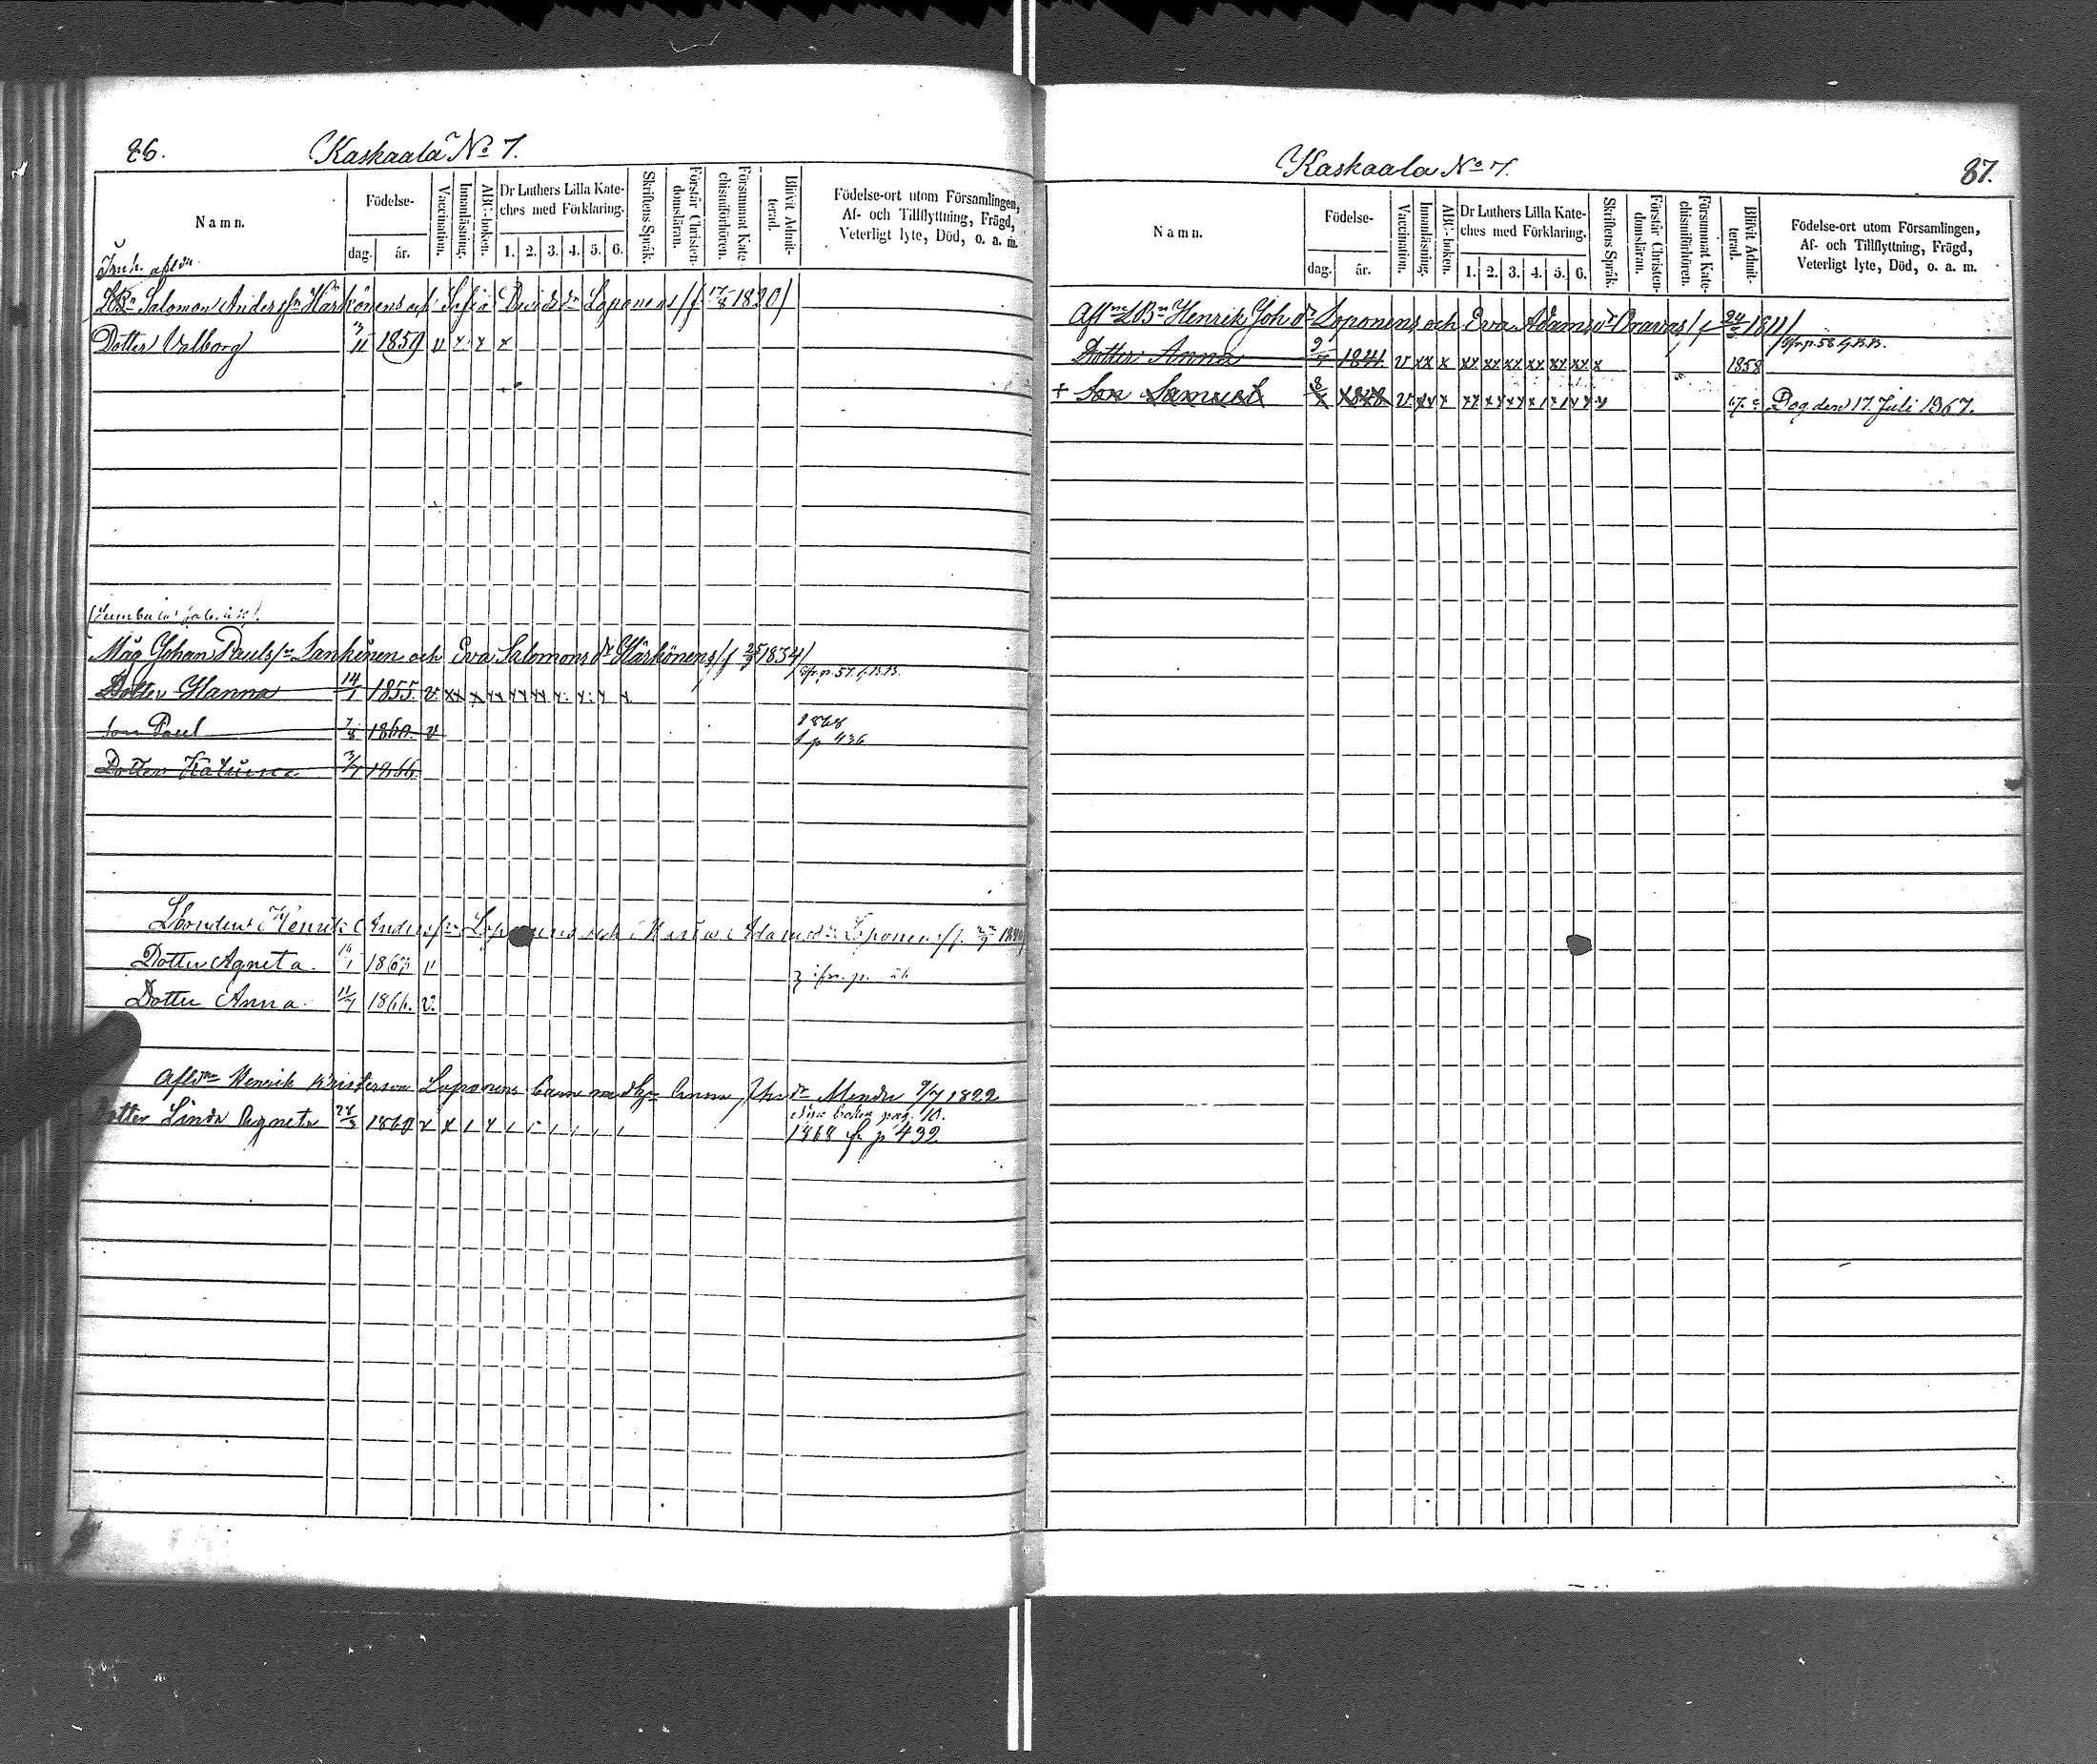 86.
Kaskaala No 7.
Namn.
Födelse-
dag.
år.
Vaccination.
Innanläsning.
ABC-boken.
Dr Luthers Lilla Kate-
ches med Förklaring.
1. 2. 3. 4. 5. 6.
Skriftens Språk.
Förstår Christen-
domsläran.
Försummat Kate-
chismiförhören.
Blivit Admit-
terad.
Födelse-ort utom Församlingen,
Af- och Tillflyttning, Frägd,
Veterligt lyte, Död, o. a. m.
Inh. afldn
LBn Salomon Andersn Härkönens och Sofia Davidsdr Loponens /f 17/8 1820/
Dotter Valborg 3/11 1859 v x x x
Måg Johan Paulsn Lankinen och Eva Salomonsdr Härkönens /f 1834/
Cfr. p. 57. g. B.B.
Dotter Hanna 14/1 1855. v. xx x xx xx xx x x x x
Son Paul 7/8 1860. v 1868
f p 436
Dotter Katarina 3/7 1866.
Lbonden Henrik Andersn Loponens och Maria Adamsdr Loponens /f.
Dotter Agneta. 1863 v
Dotter Anna. 11/7 1866. v.
Afldne Henrik Kristerson Loponens barn med Anna Joh dr Mendu 9/7 1822
nya boken pag. 10.
Dotter Linda Agneta 28/3 1860 v x 1 x 1 1 1 1 1 1 1868 fr p 432
Kaskaala No 7.
87.
Namn.
Födelse-
dag.
år.
Vaccination.
Innanläsning.
ABC-boken.
Dr Luthers Lilla Kate-
ches med Förklaring.
1. 2. 3. 4. 5. 6.
Skriftens Språk.
Förstår Christen-
domsläran.
Försummat Kate-
chismiförhören.
Blivit Admit-
terad.
Födelse-ort utom Församlingen,
Af- och Tillflyttning, Frägd,
Veterligt lyte, Död, o. a. m.
Afl ne LBn Henrik Joh dr Loponens och Eva Adamsdr Oravas /f 24/8 1811/
Cfr. p. 58 g. B.B.
Dotter Anna 9/7 1841. v xx x xx xx xx xx xx xx x 1858
+ Son Samuel 8/ 1848. v. xx x xx xx xx x x x x x Dog den 17. Juli 1867.